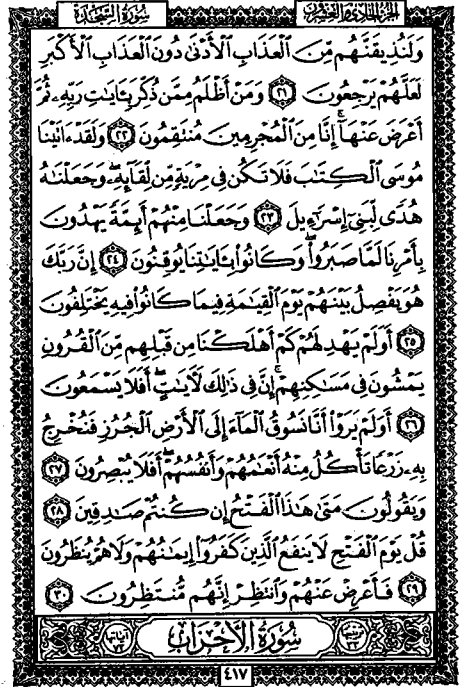 سورة السجدة
الجزء الحادي والعشرون
وَلَنُذِيقَنَّهُم مِّنَ ٱلْعَذَابِ ٱلْأَدْنَىٰ دُونَ ٱلْعَذَابِ ٱلْأَكْبَرِ
لَعَلَّهُمْ يَرْجِعُونَ ٢١ وَمَنْ أَظْلَمُ مِمَّن ذُكِّرَ بِـَٔايَٰتِ رَبِّهِۦ ثُمَّ
أَعْرَضَ عَنْهَآ ۚ إِنَّا مِنَ ٱلْمُجْرِمِينَ مُنتَقِمُونَ ٢٢ وَلَقَدْ ءَاتَيْنَا
مُوسَى ٱلْكِتَٰبَ فَلَا تَكُن فِى مِرْيَةٍ مِّن لِّقَآئِهِۦ ۖ وَجَعَلْنَٰهُ
هُدًى لِّبَنِىٓ إِسْرَٰٓءِيلَ ٢٣ وَجَعَلْنَا مِنْهُمْ أَئِمَّةً يَهْدُونَ
بِأَمْرِنَا لَمَّا صَبَرُوا۟ ۖ وَكَانُوا۟ بِـَٔايَٰتِنَا يُوقِنُونَ ٢٤ إِنَّ رَبَّكَ
هُوَ يَفْصِلُ بَيْنَهُمْ يَوْمَ ٱلْقِيَٰمَةِ فِيمَا كَانُوا۟ فِيهِ يَخْتَلِفُونَ
٢٥ أَوَلَمْ يَهْدِ لَهُمْ كَمْ أَهْلَكْنَا مِن قَبْلِهِم مِّنَ ٱلْقُرُونِ
يَمْشُونَ فِى مَسَٰكِنِهِمْ ۚ إِنَّ فِى ذَٰلِكَ لَـَٔايَٰتٍ ۖ أَفَلَا يَسْمَعُونَ
٢٦ أَوَلَمْ يَرَوْا۟ أَنَّا نَسُوقُ ٱلْمَآءَ إِلَى ٱلْأَرْضِ ٱلْجُرُزِ فَنُخْرِجُ
بِهِۦ زَرْعًا تَأْكُلُ مِنْهُ أَنْعَٰمُهُمْ وَأَنفُسُهُمْ ۖ أَفَلَا يُبْصِرُونَ ٢٧
وَيَقُولُونَ مَتَىٰ هَٰذَا ٱلْفَتْحُ إِن كُنتُمْ صَٰدِقِينَ ٢٨
قُلْ يَوْمَ ٱلْفَتْحِ لَا يَنفَعُ ٱلَّذِينَ كَفَرُوٓا۟ إِيمَٰنُهُمْ وَلَا هُمْ يُنظَرُونَ
٢٩ فَأَعْرِضْ عَنْهُمْ وَٱنتَظِرْ إِنَّهُم مُّنتَظِرُونَ ٣٠
سُورَةُ الأَحْزَابِ
آياتها ٧٣
٤١٧